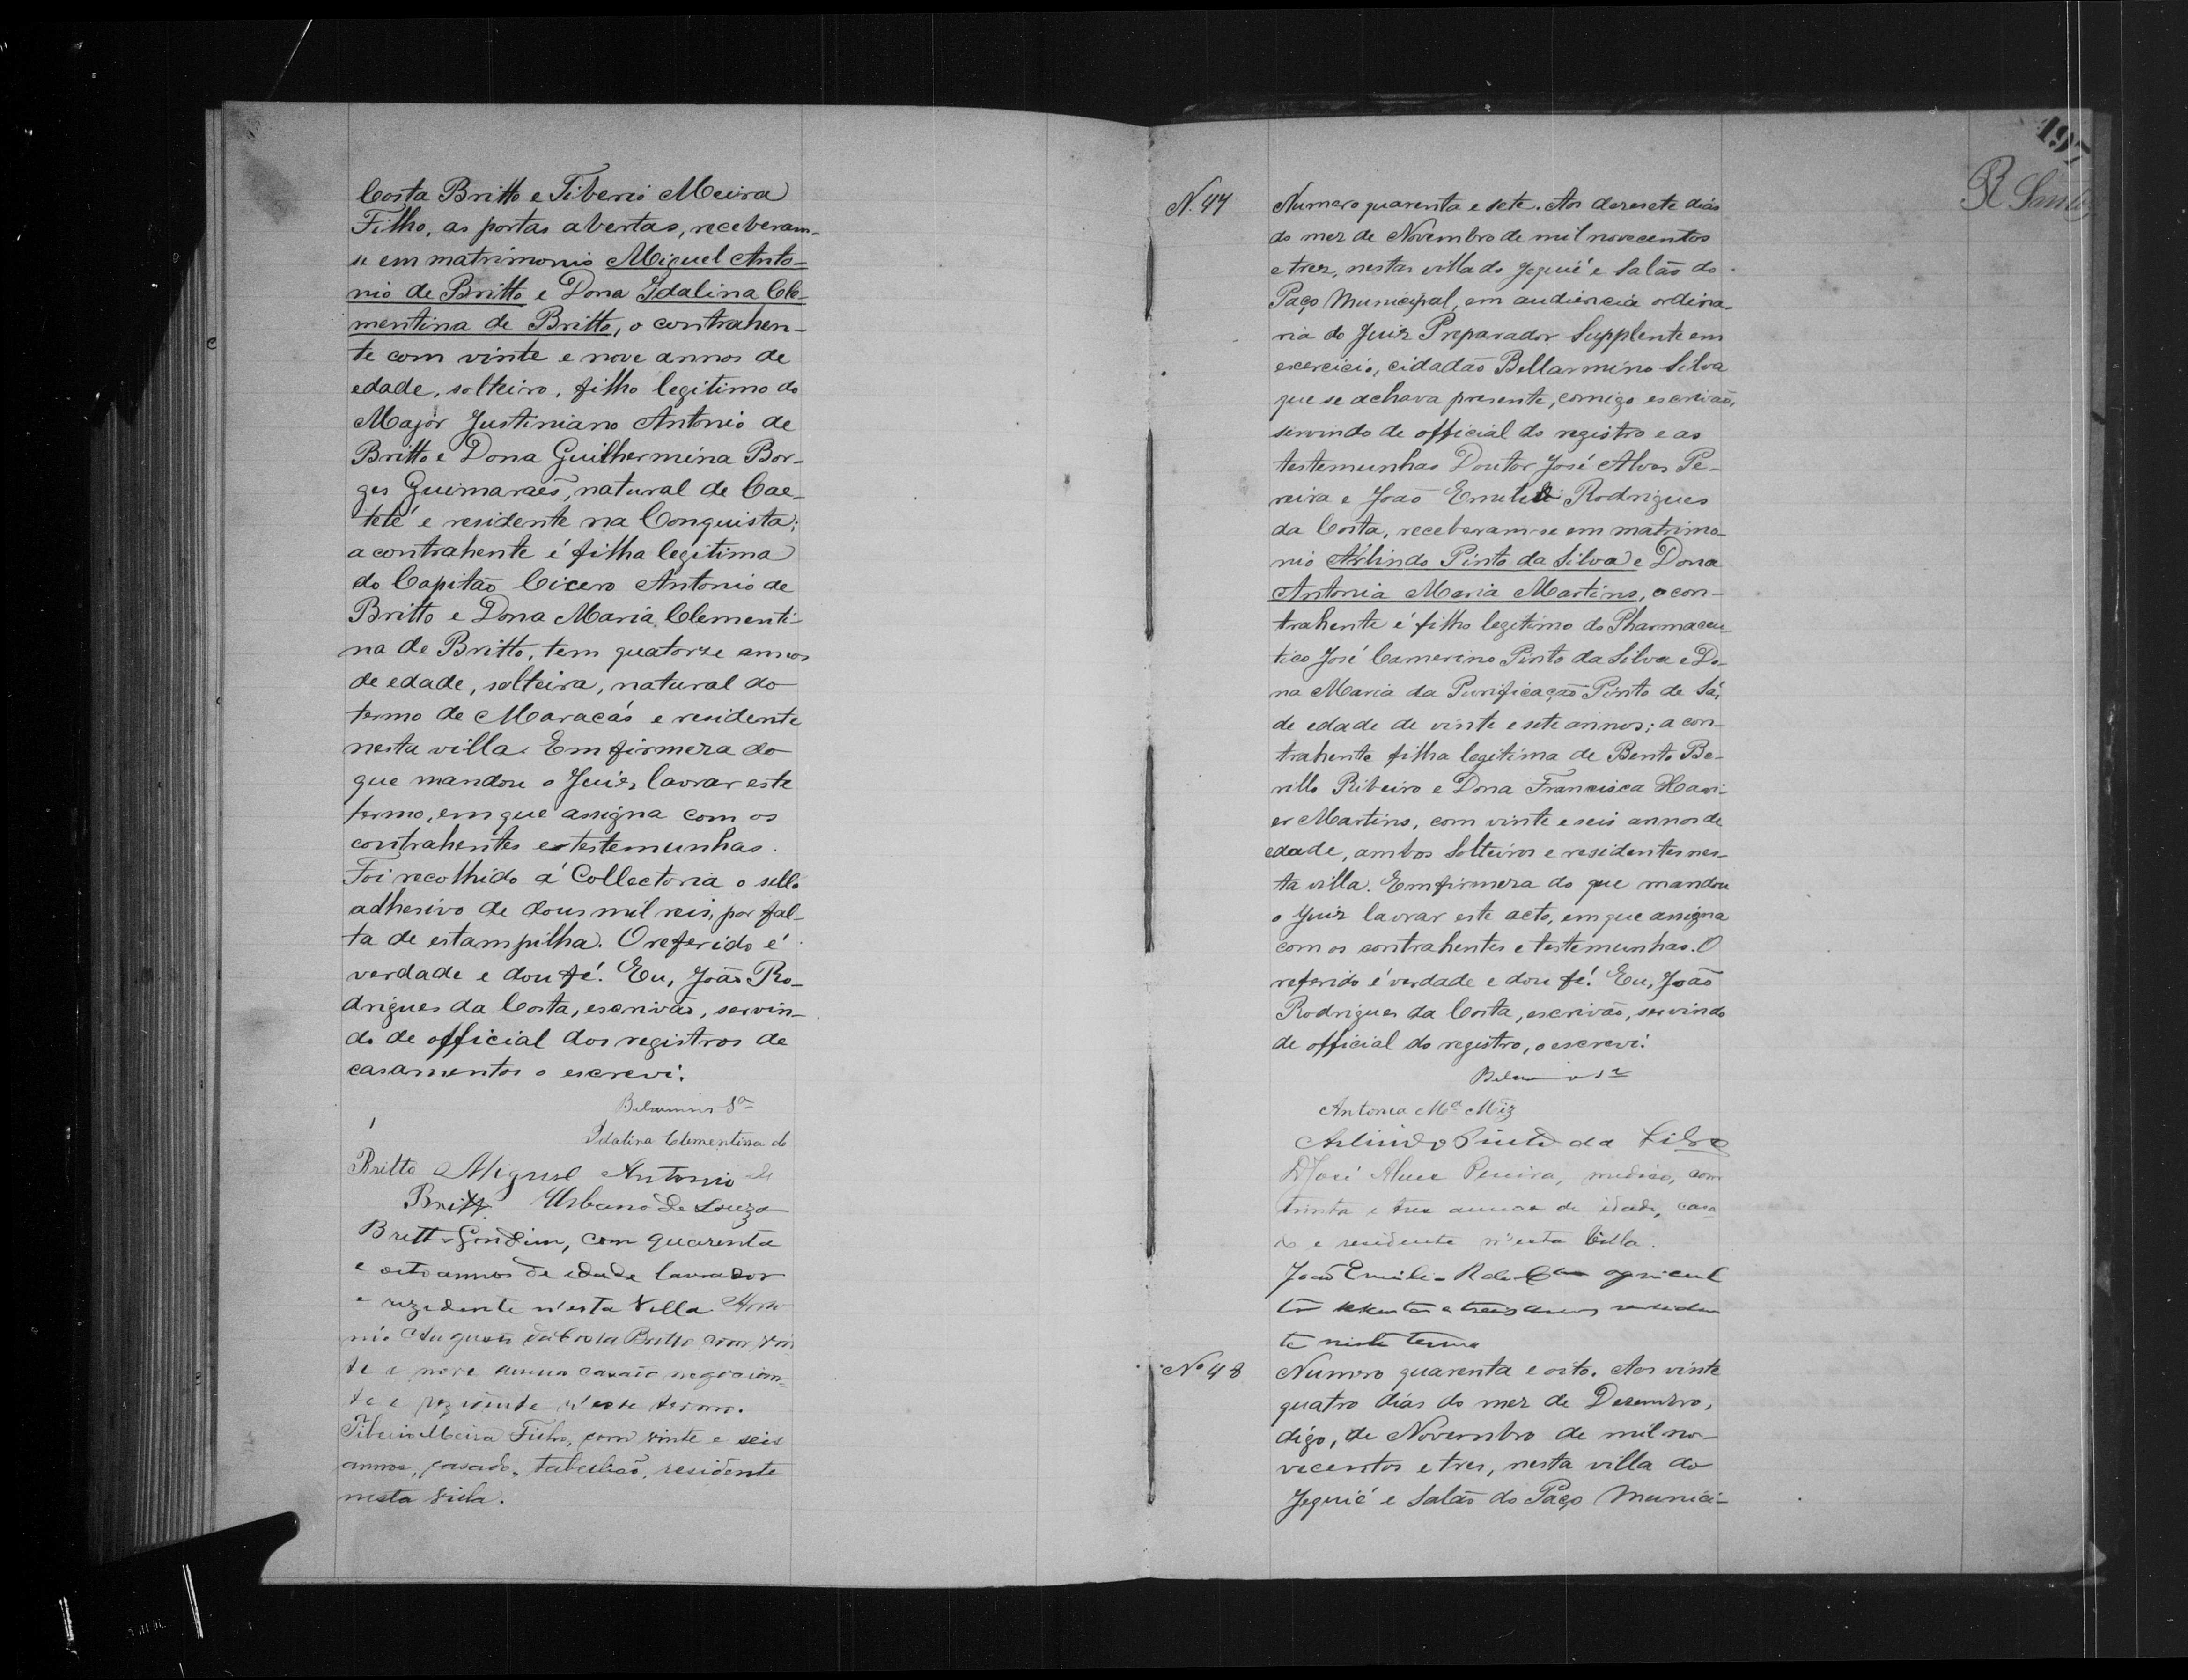 Costa Britto e Tiberio Meira
Filho, as portas abertas, receberam-
se em matrimonio Miguel Anto-
nio de Britto e Dona Idalina Cle-
mentina de Britto, o contrahen-
te com vinte e nove annos de
edade, solteiro, filho legitimo do
Major Justiniano Antonio de
Britto e Dona Guilhermina Bor-
ges Guimarães, natural de Cae-
teté e residente na Conquista;
a contrahente é filha legitima
do Capitão Cicero Antonio de
Britto e Dona Maria Clementi-
na de Britto, tem quatorze annos
de edade, solteira, natural do
termo de Maracás e residente
nesta villa. Em firmeza do
que mandou o Juiz lavrar este
termo, em que assigna com os
contrahentes e testemunhas.
Foi recolhido á Collectoria o sello
adhesivo de dous mil reis, por fal-
ta de estampilha. O referido é
verdade e dou fé. Eu, João Ro-
drigues da Costa, escrivão, servin-
do de official dos registros de
casamentos o escrevi.
Belarmino Sª
Idalina Clementina de
Britto Miguel Antonio de
Britto Urbano de Souza
Britto Gondim, com quarenta
e oito annos de idade lavrador
e rezidente n'esta Villa
nio Augusto da Costa Britto com vin
te e nove annos casado negocian
te e rezidente n'este termo.
Tiberio Meira Filho, com vinte e seis
annos, casado, tabelião, residente
nesta villa.
197
R Santos
N. 47
Numero quarenta e sete. Aos dezesete dias
do mez de Novembro de mil novecentos
e trez, nesta villa do Jequié e Salão do
Paço Municipal, em audiencia ordina-
ria do Juiz Preparador Supplente em
exercicio, cidadão Bellarmino Silva
que se achava presente, comigo escrivão,
servindo de official do registro e as
testemunhas Doutor José Alves Pe-
reira e João Emilio Rodrigues
da Costa, receberam-se em matrimo-
nio Arlindo Pinto da Silva e Dona
Antonia Maria Martins, o con-
trahente é filho legitimo do Pharmaceu-
tico José Camerino Pinto da Silva e Do-
na Maria da Purificação Pinto de Sá,
de edade de vinte e sete annos; a con-
trahente filha legitima de Bento Be-
rillo Ribeiro e Dona Francisca Xavi-
er Martins, com vinte e seis annos de
edade, ambos solteiros e residentes nes-
ta villa. Em firmeza do que mandou
o Juiz lavrar este acto, em que assigna
com os contrahentes e testemunhas. O
referido é verdade e dou fé. Eu, João
Rodrigues da Costa, escrivão, servindo
de official do registro, o escrevi.
Antonia Mª Miz
Arlindo Pinto da Silva
Dr José Alves Pereira, medico, com
trinta e tres annos de idade, casa
do e residente n'esta Villa.
João Emilio R da Cta agricul
tor sesenta e treis annos residen
te neste termo
Nº 48
Numero quarenta e oito. Aos vinte
quatro dias do mez de Dezembro,
digo, de Novembro de mil no-
vecentos e tres, nesta villa do
Jequié e Salão do Paço Munici-